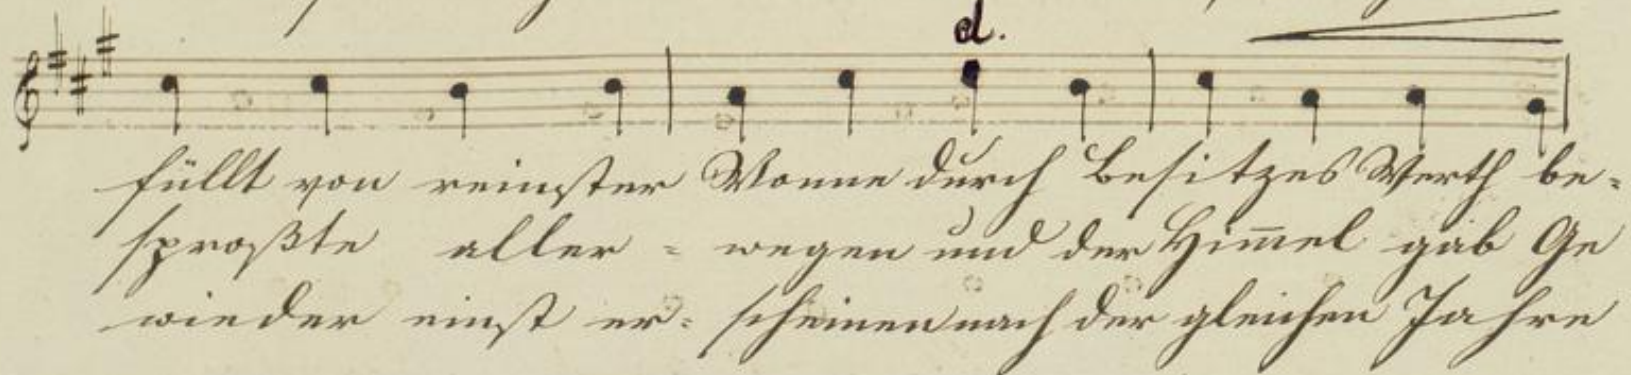 d.
füllt von reinster Wonne durch Besitzes Werth be-
sproßte aller - wegen und der Him̄el gab Ge
wieder einst er- scheinen nach der gleichen Jahre